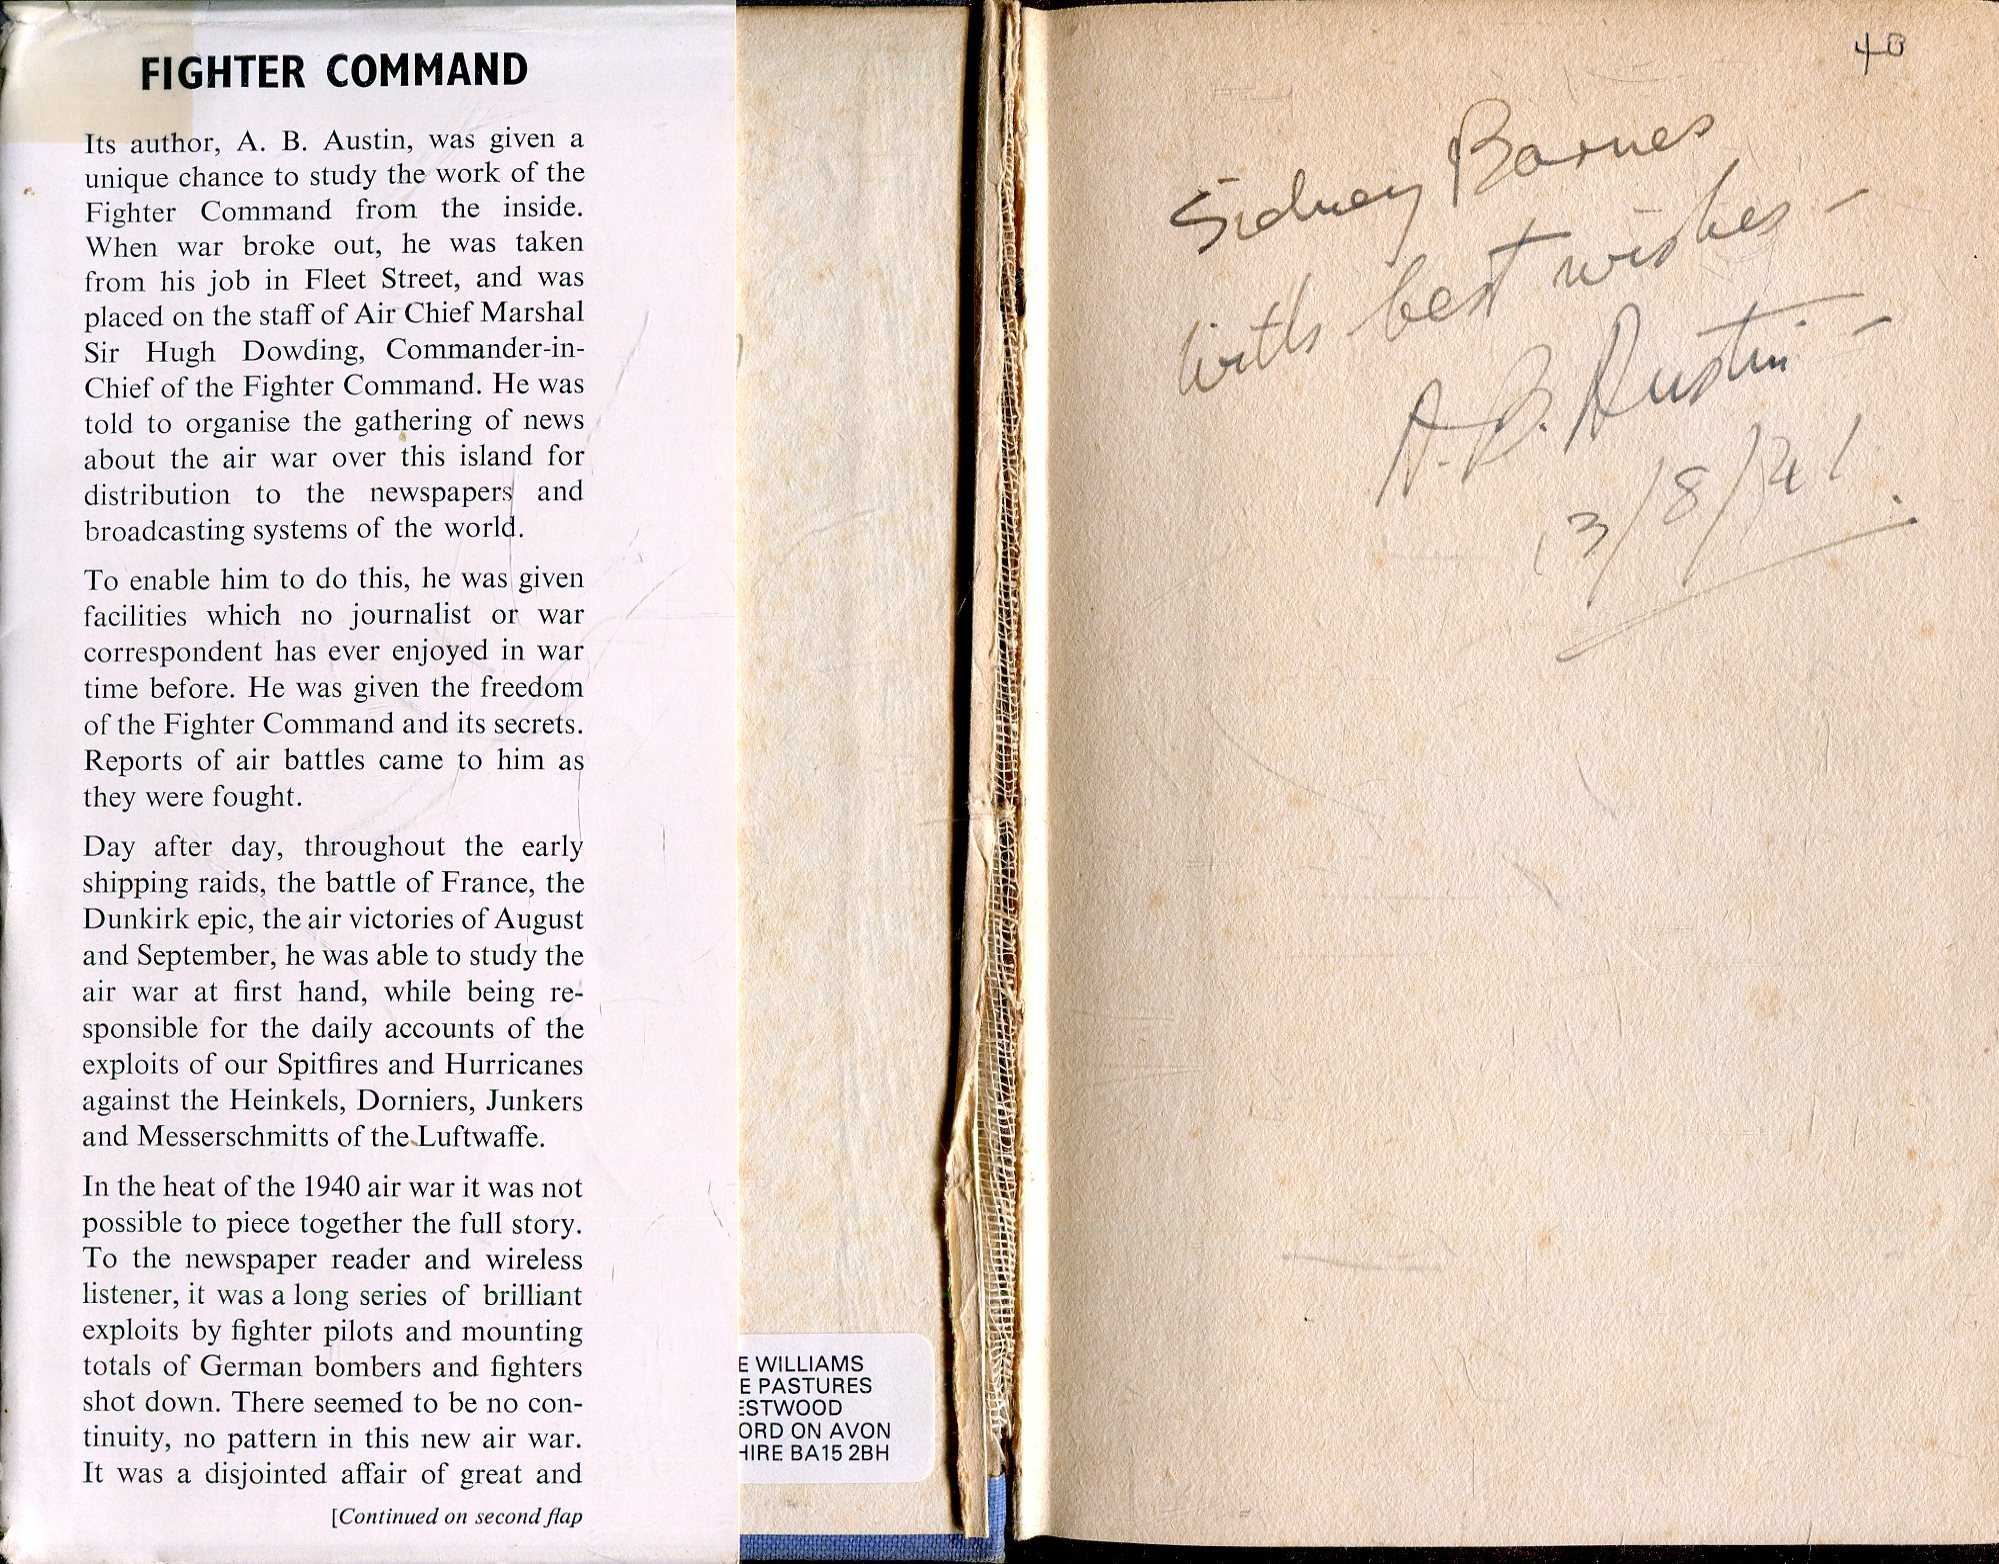 FIGHTER COMMAND
Its author, A. B. Austin, was given a
unique chance to study the work of the
Fighter Command from the inside.
When war broke out, he was taken
from his job in Fleet Street, and was
placed on the staff of Air Chief Marshal
Sir Hugh Dowding, Commander-in-
Chief of the Fighter Command. He was
told to organise the gathering of news
about the air war over this island for
distribution to the newspapers and
broadcasting systems of the world.
To enable him to do this, he was given
facilities which no journalist or war
correspondent has ever enjoyed in war
time before. He was given the freedom
of the Fighter Command and its secrets.
Reports of air battles came to him as
they were fought.
Day after day, throughout the early
shipping raids, the battle of France, the
Dunkirk epic, the air victories of August
and September, he was able to study the
air war at first hand, while being re-
sponsible for the daily accounts of the
exploits of our Spitfires and Hurricanes
against the Heinkels, Dorniers, Junkers
and Messerschmitts of the Luftwaffe.
In the heat of the 1940 air war it was not
possible to piece together the full story.
To the newspaper reader and wireless
listener, it was a long series of brilliant
exploits by fighter pilots and mounting
totals of German bombers and fighters
shot down. There seemed to be no con-
tinuity, no pattern in this new air war.
It was a disjointed affair of great and
[Continued on second flap
E WILLIAMS
E PASTURES
ESTWOOD
ORD ON AVON
HIRE BA15 2BH
40
Sidney Barnes
with best wishes -
A. B. Austin -
13/8/41.